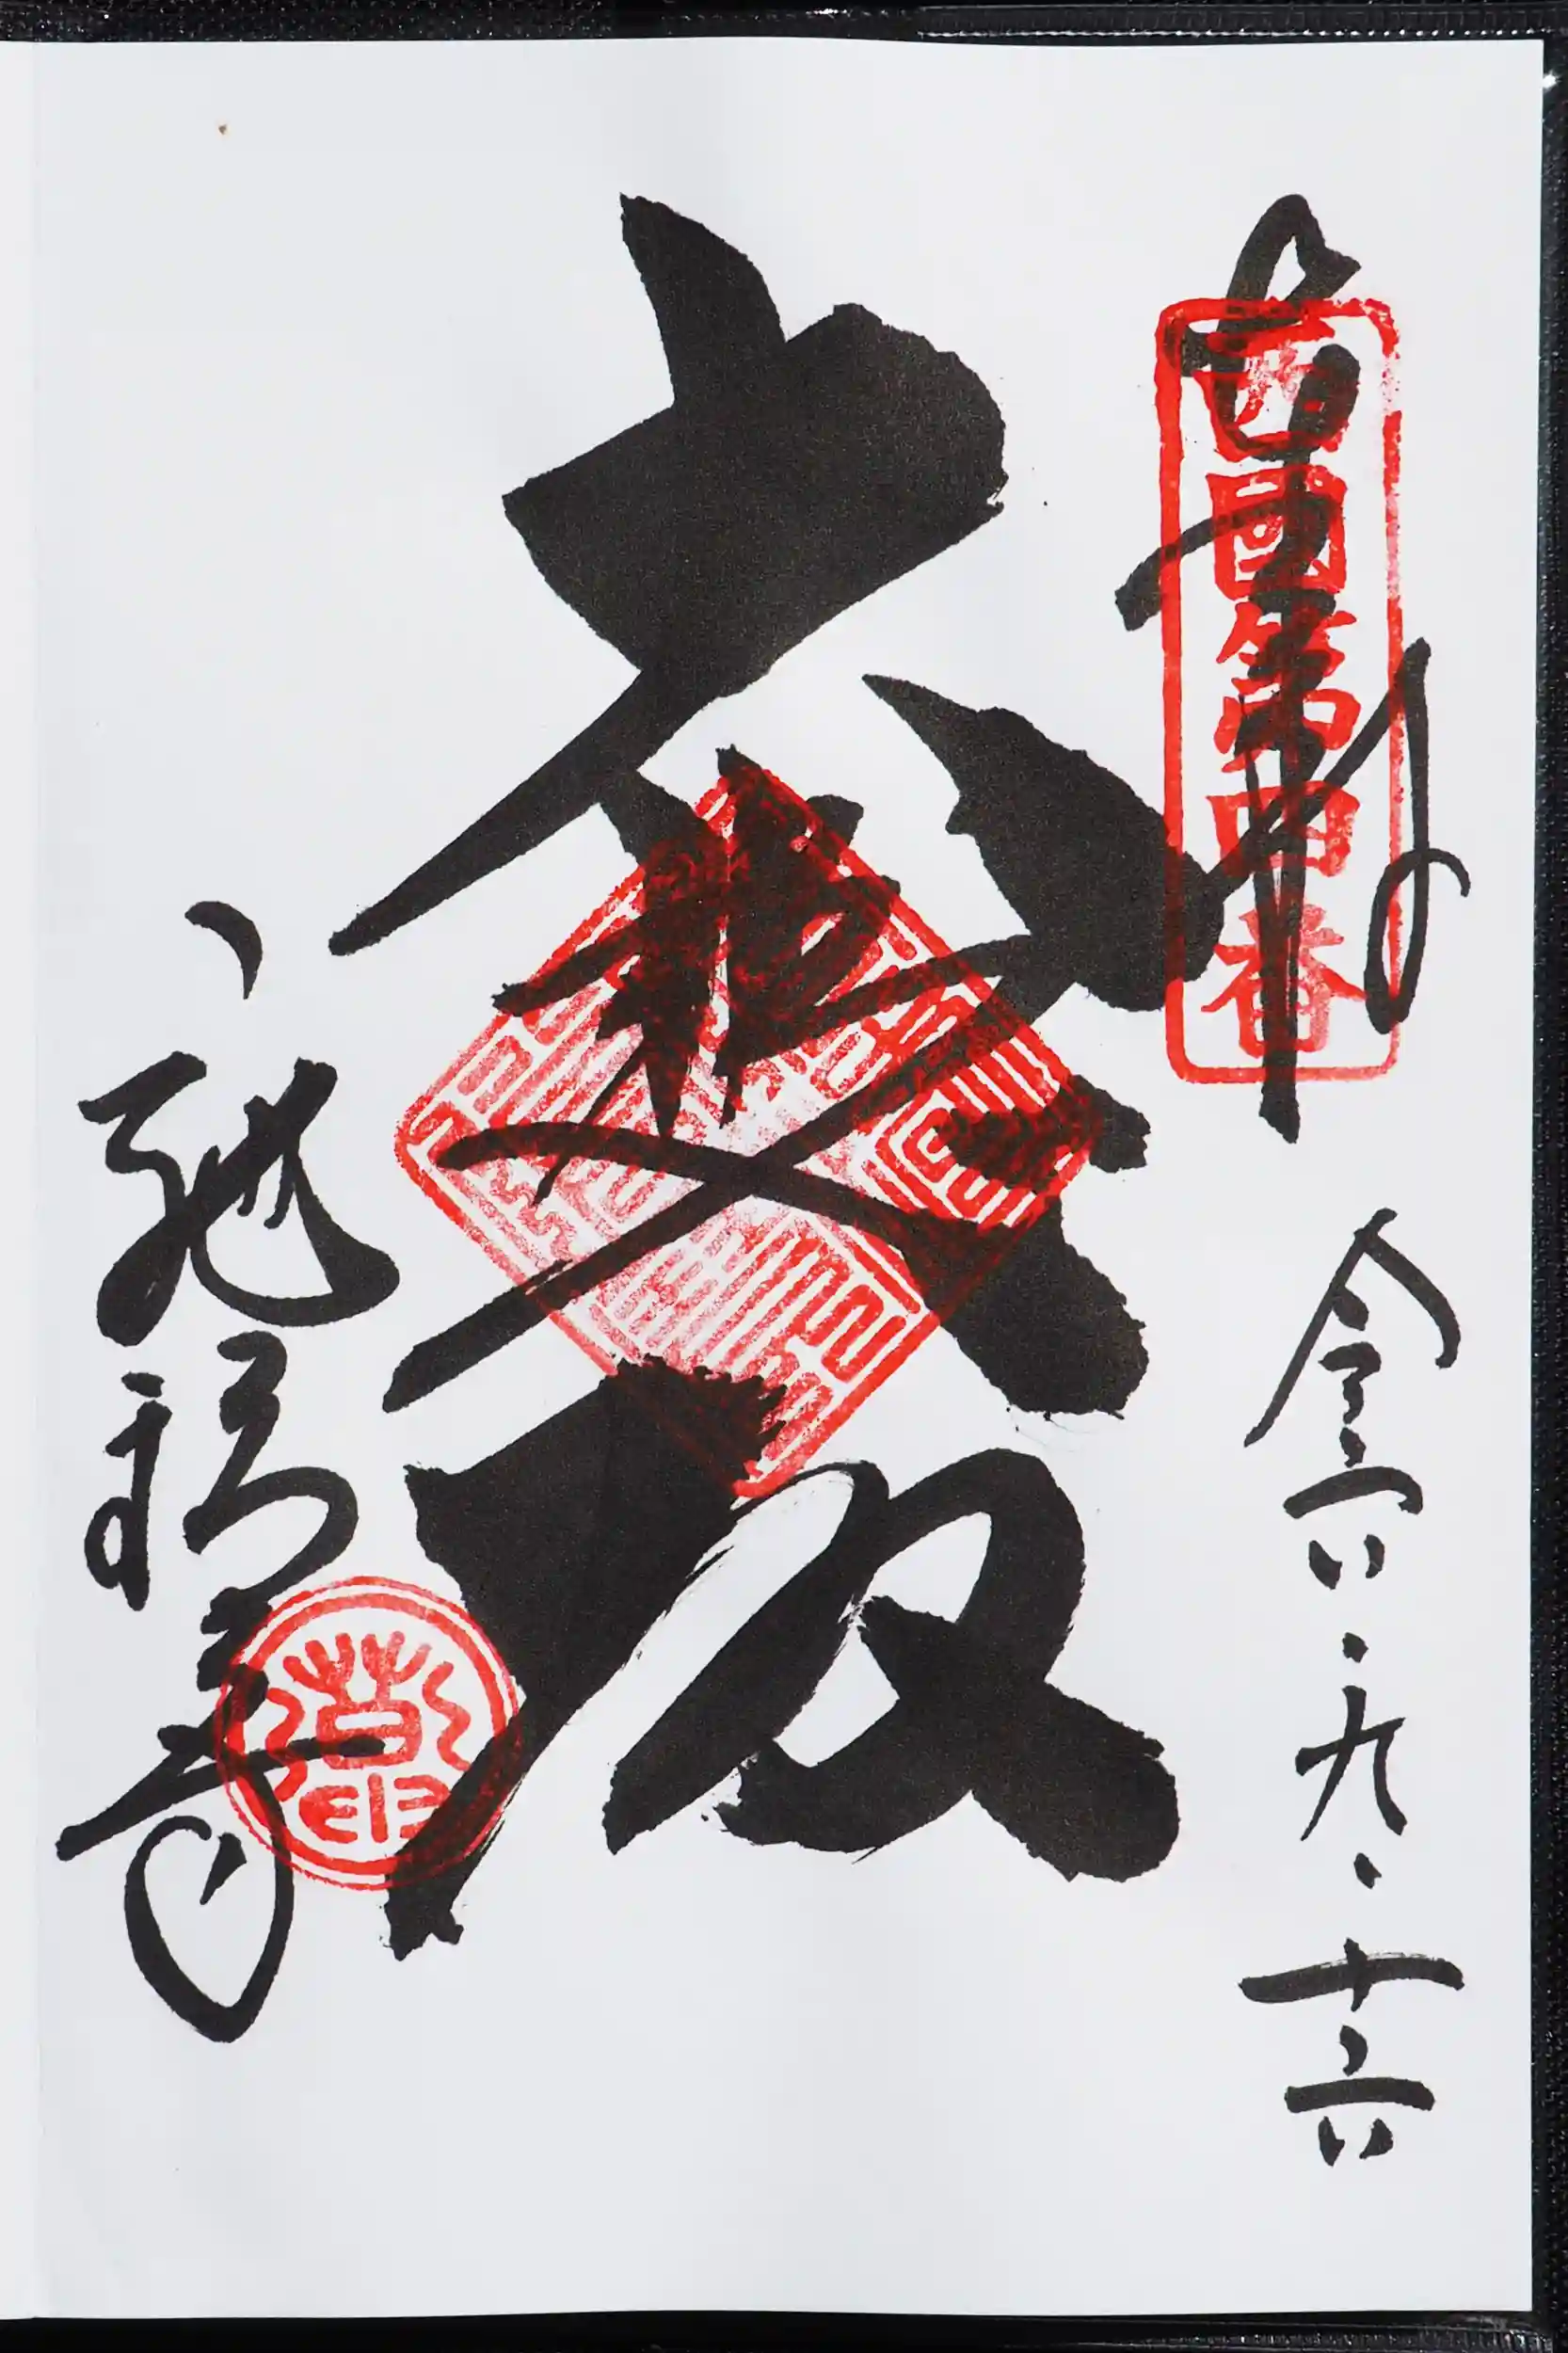 奉拝
西國第四番
令六・九・十六
大悲殿
施福寺